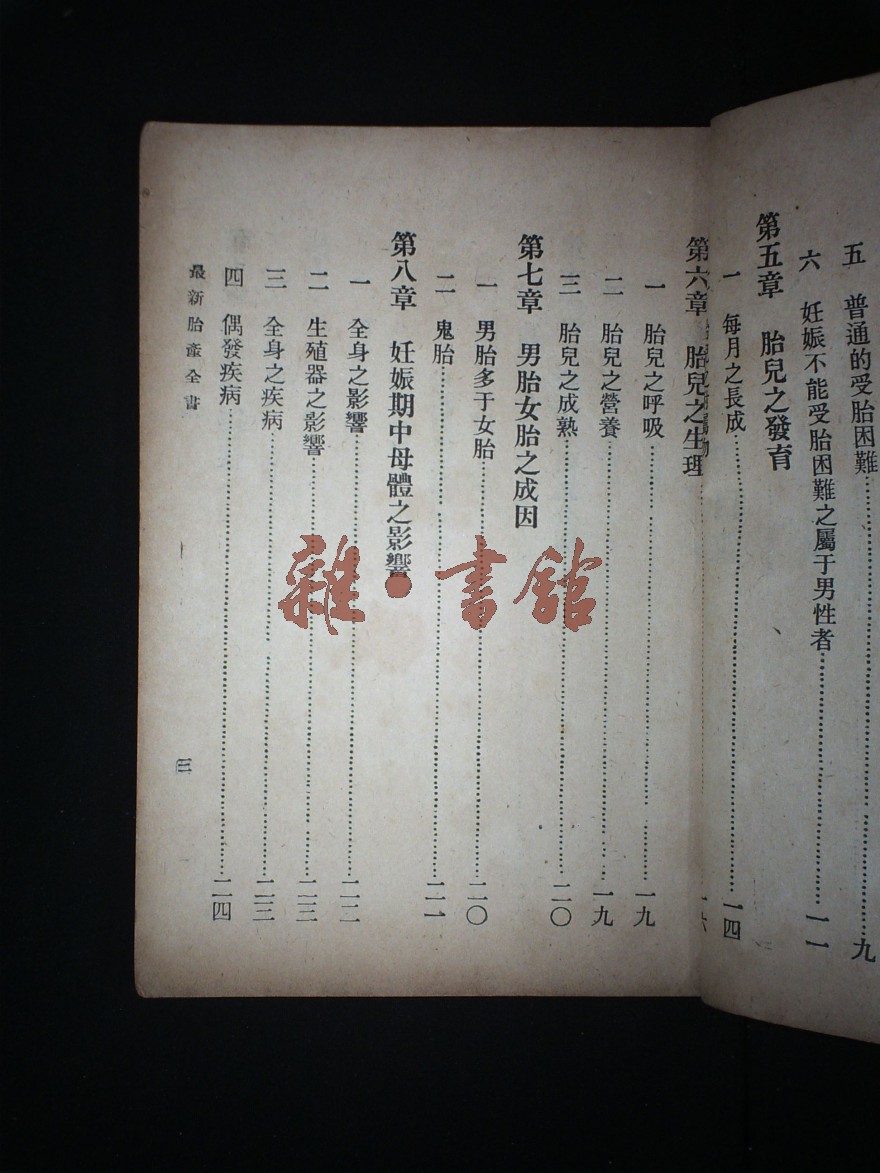 五　普通的受胎困難……九
六　妊娠不能受胎困難之屬于男性者……一一
第五章　胎兒之發育
一　每月之長成……一四
第六章　胎兒之生理
一　胎兒之呼吸……一九
二　胎兒之營養……一九
三　胎兒之成熟……二〇
第七章　男胎女胎之成因
一　男胎多于女胎……二〇
二　鬼胎……二一
第八章　妊娠期中母體之影響
一　全身之影響……二二
二　生殖器之影響……二三
三　全身之疾病……二三
四　偶發疾病……二四
最新胎產全書
三
雜·書館